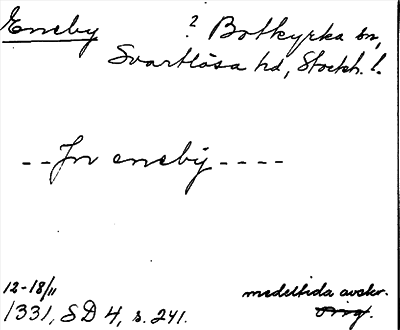 Eneby ? Botkyrka sn,
Svartlösa hd, Stockh. l.
--Jn eneby----
12-18/11
1331, SD 4, s. 241.
medeltida avskr.
Orig.